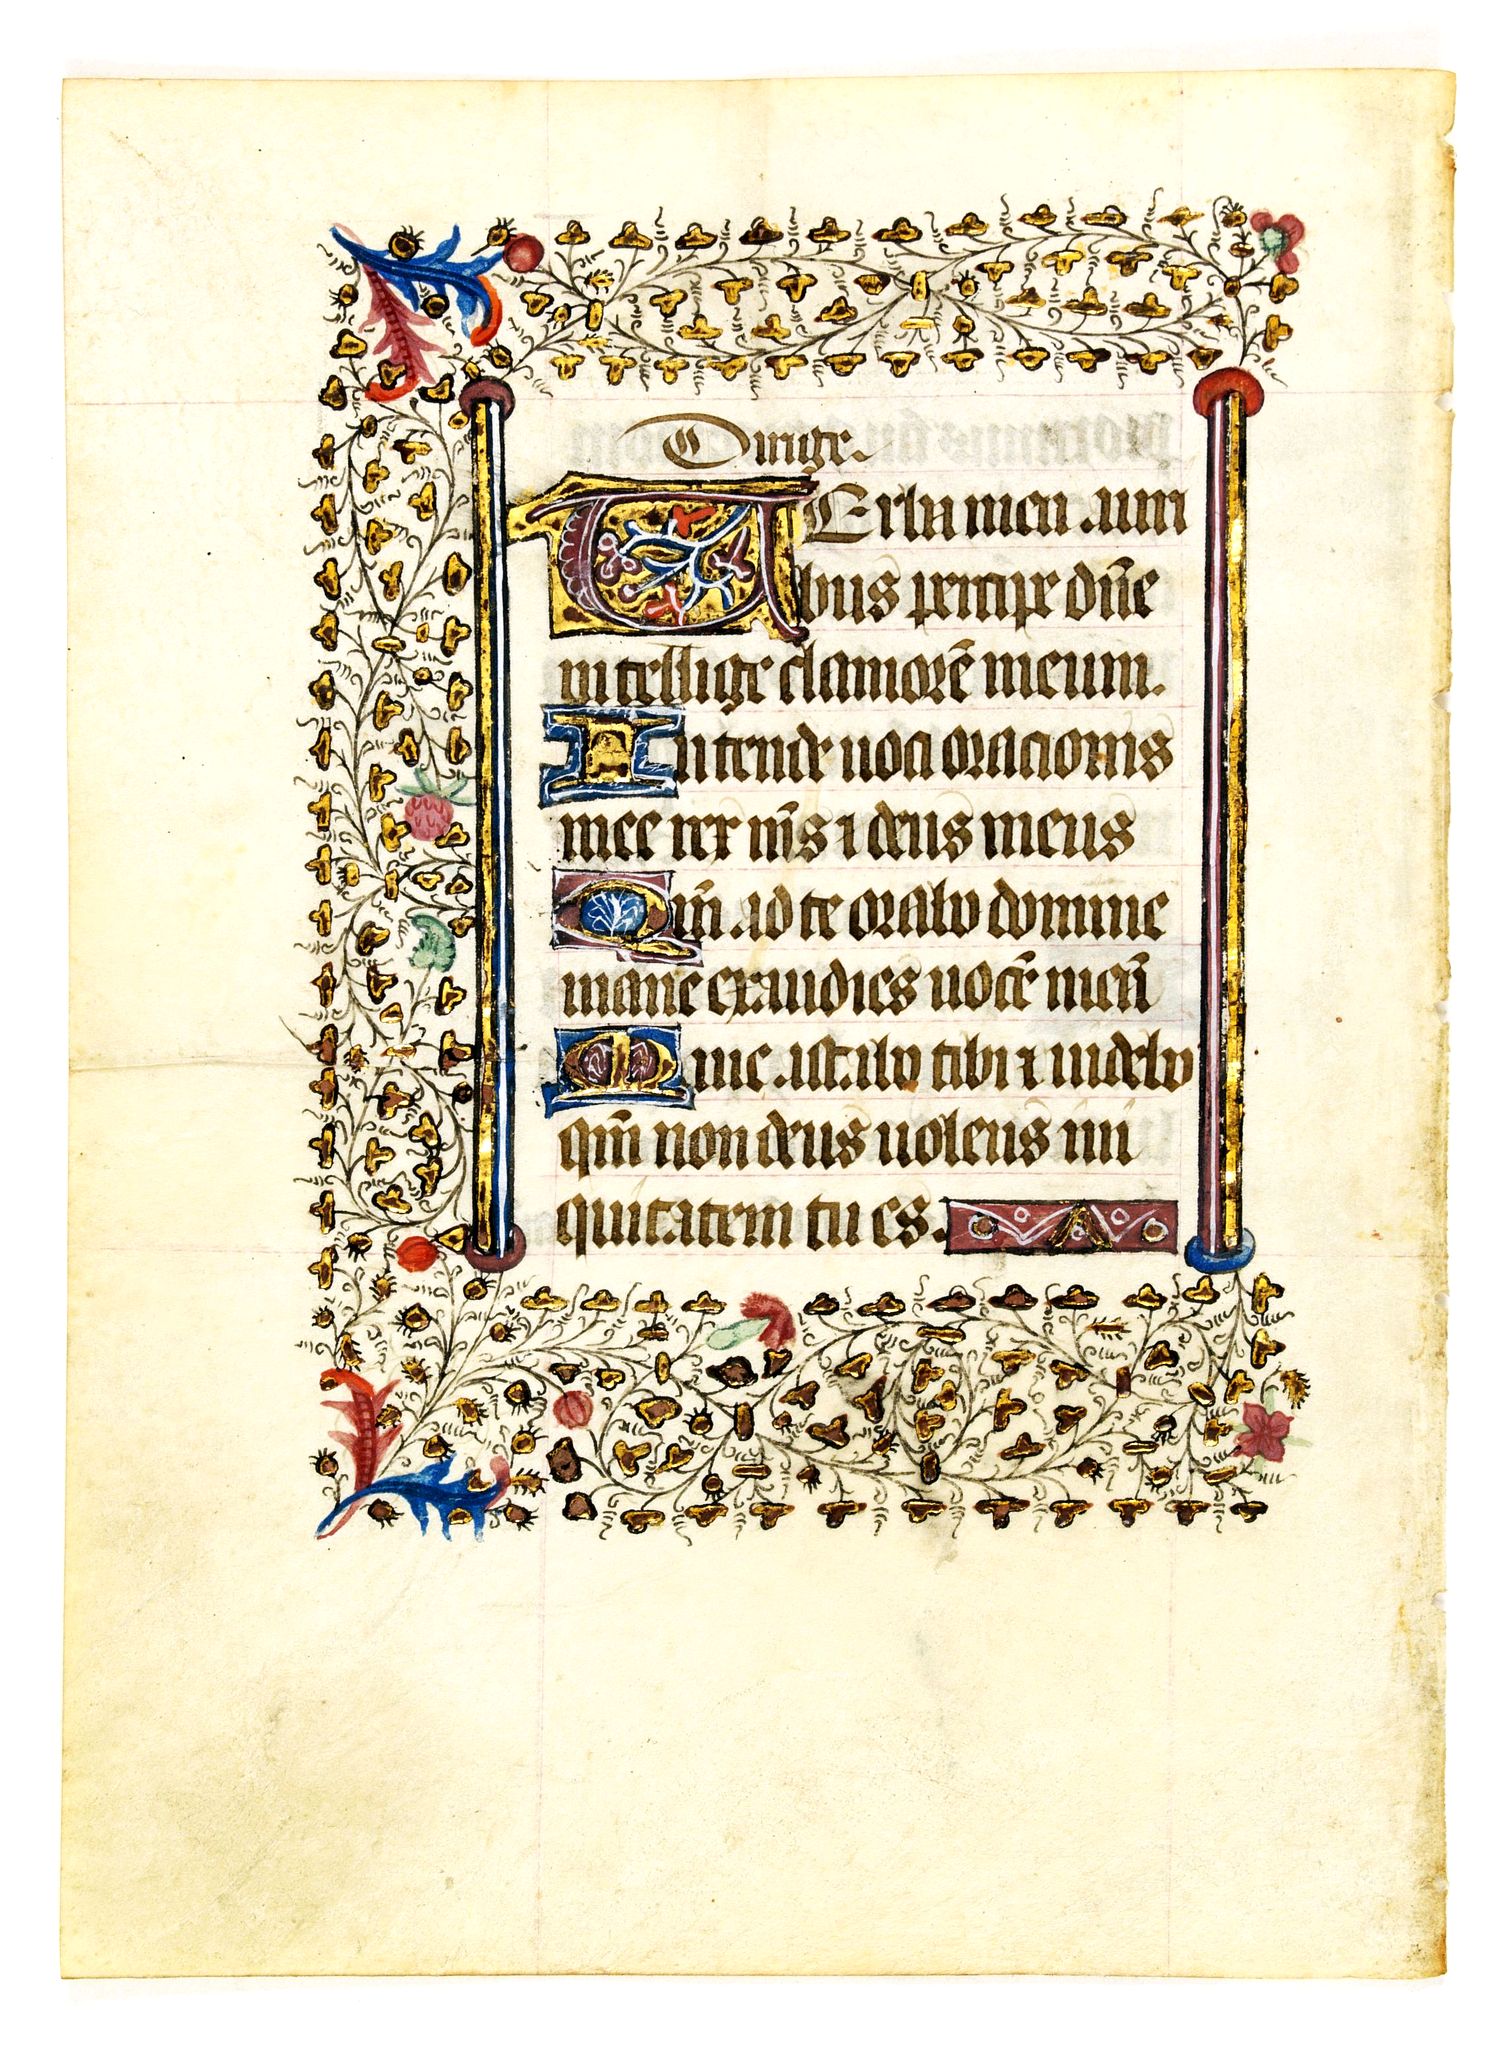 Dirige.
VErba mea auri
bus percipe dñe
intellige clamorē meum.
Intende uoci orationis
mee rex m̄s ⁊ deus meus
Qm̄ ad te orabo domine
mane exaudies uocē meā
Mane astabo tibi ⁊ uidebo
qm̄ non deus uolens ini
quitatem tu es.